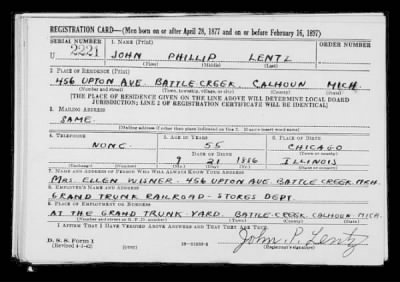 REGISTRATION CARD—(Men born on or after April 28, 1877 and on or before February 16, 1897)
SERIAL NUMBER 1. NAME (Print)
U 2221 JOHN PHILLIP LENTZ
(First) (Middle) (Last)
2. PLACE OF RESIDENCE (Print)
456 UPTON AVE. BATTLE CREEK, CALHOUN MICH.
(Number and street) (Town, township, village, or city) (County) (State)
[THE PLACE OF RESIDENCE GIVEN ON THE LINE ABOVE WILL DETERMINE LOCAL BOARD
JURISDICTION; LINE 2 OF REGISTRATION CERTIFICATE WILL BE IDENTICAL]
3. MAILING ADDRESS
SAME.
[Mailing address if other than place indicated on line 2. If same insert word same]
4. TELEPHONE 5. AGE IN YEARS 6. PLACE OF BIRTH
NONE. 55 CHICAGO
DATE OF BIRTH (Town or county)
9 21 1886 ILLINOIS
(Exchange) (Number) (Mo.) (Day) (Yr.) (State or country)
7. NAME AND ADDRESS OF PERSON WHO WILL ALWAYS KNOW YOUR ADDRESS
MRS. ELLEN PUSNER - 456 UPTON AVE. BATTLE CREEK. MCH.
8. EMPLOYER'S NAME AND ADDRESS
GRAND TRUNK RAILROAD - STORES DEPT.
9. PLACE OF EMPLOYMENT OR BUSINESS
AT THE GRAND TRUNK YARD. BATTLE CREEK. CALHOUN. MICH.
(Number and street or R. F. D. number) (Town) (County) (State)
I AFFIRM THAT I HAVE VERIFIED ABOVE ANSWERS AND THAT THEY ARE TRUE.
D. S. S. Form 1
(Revised 4-1-42) (over) John P. Lentz
(Registrant's signature)